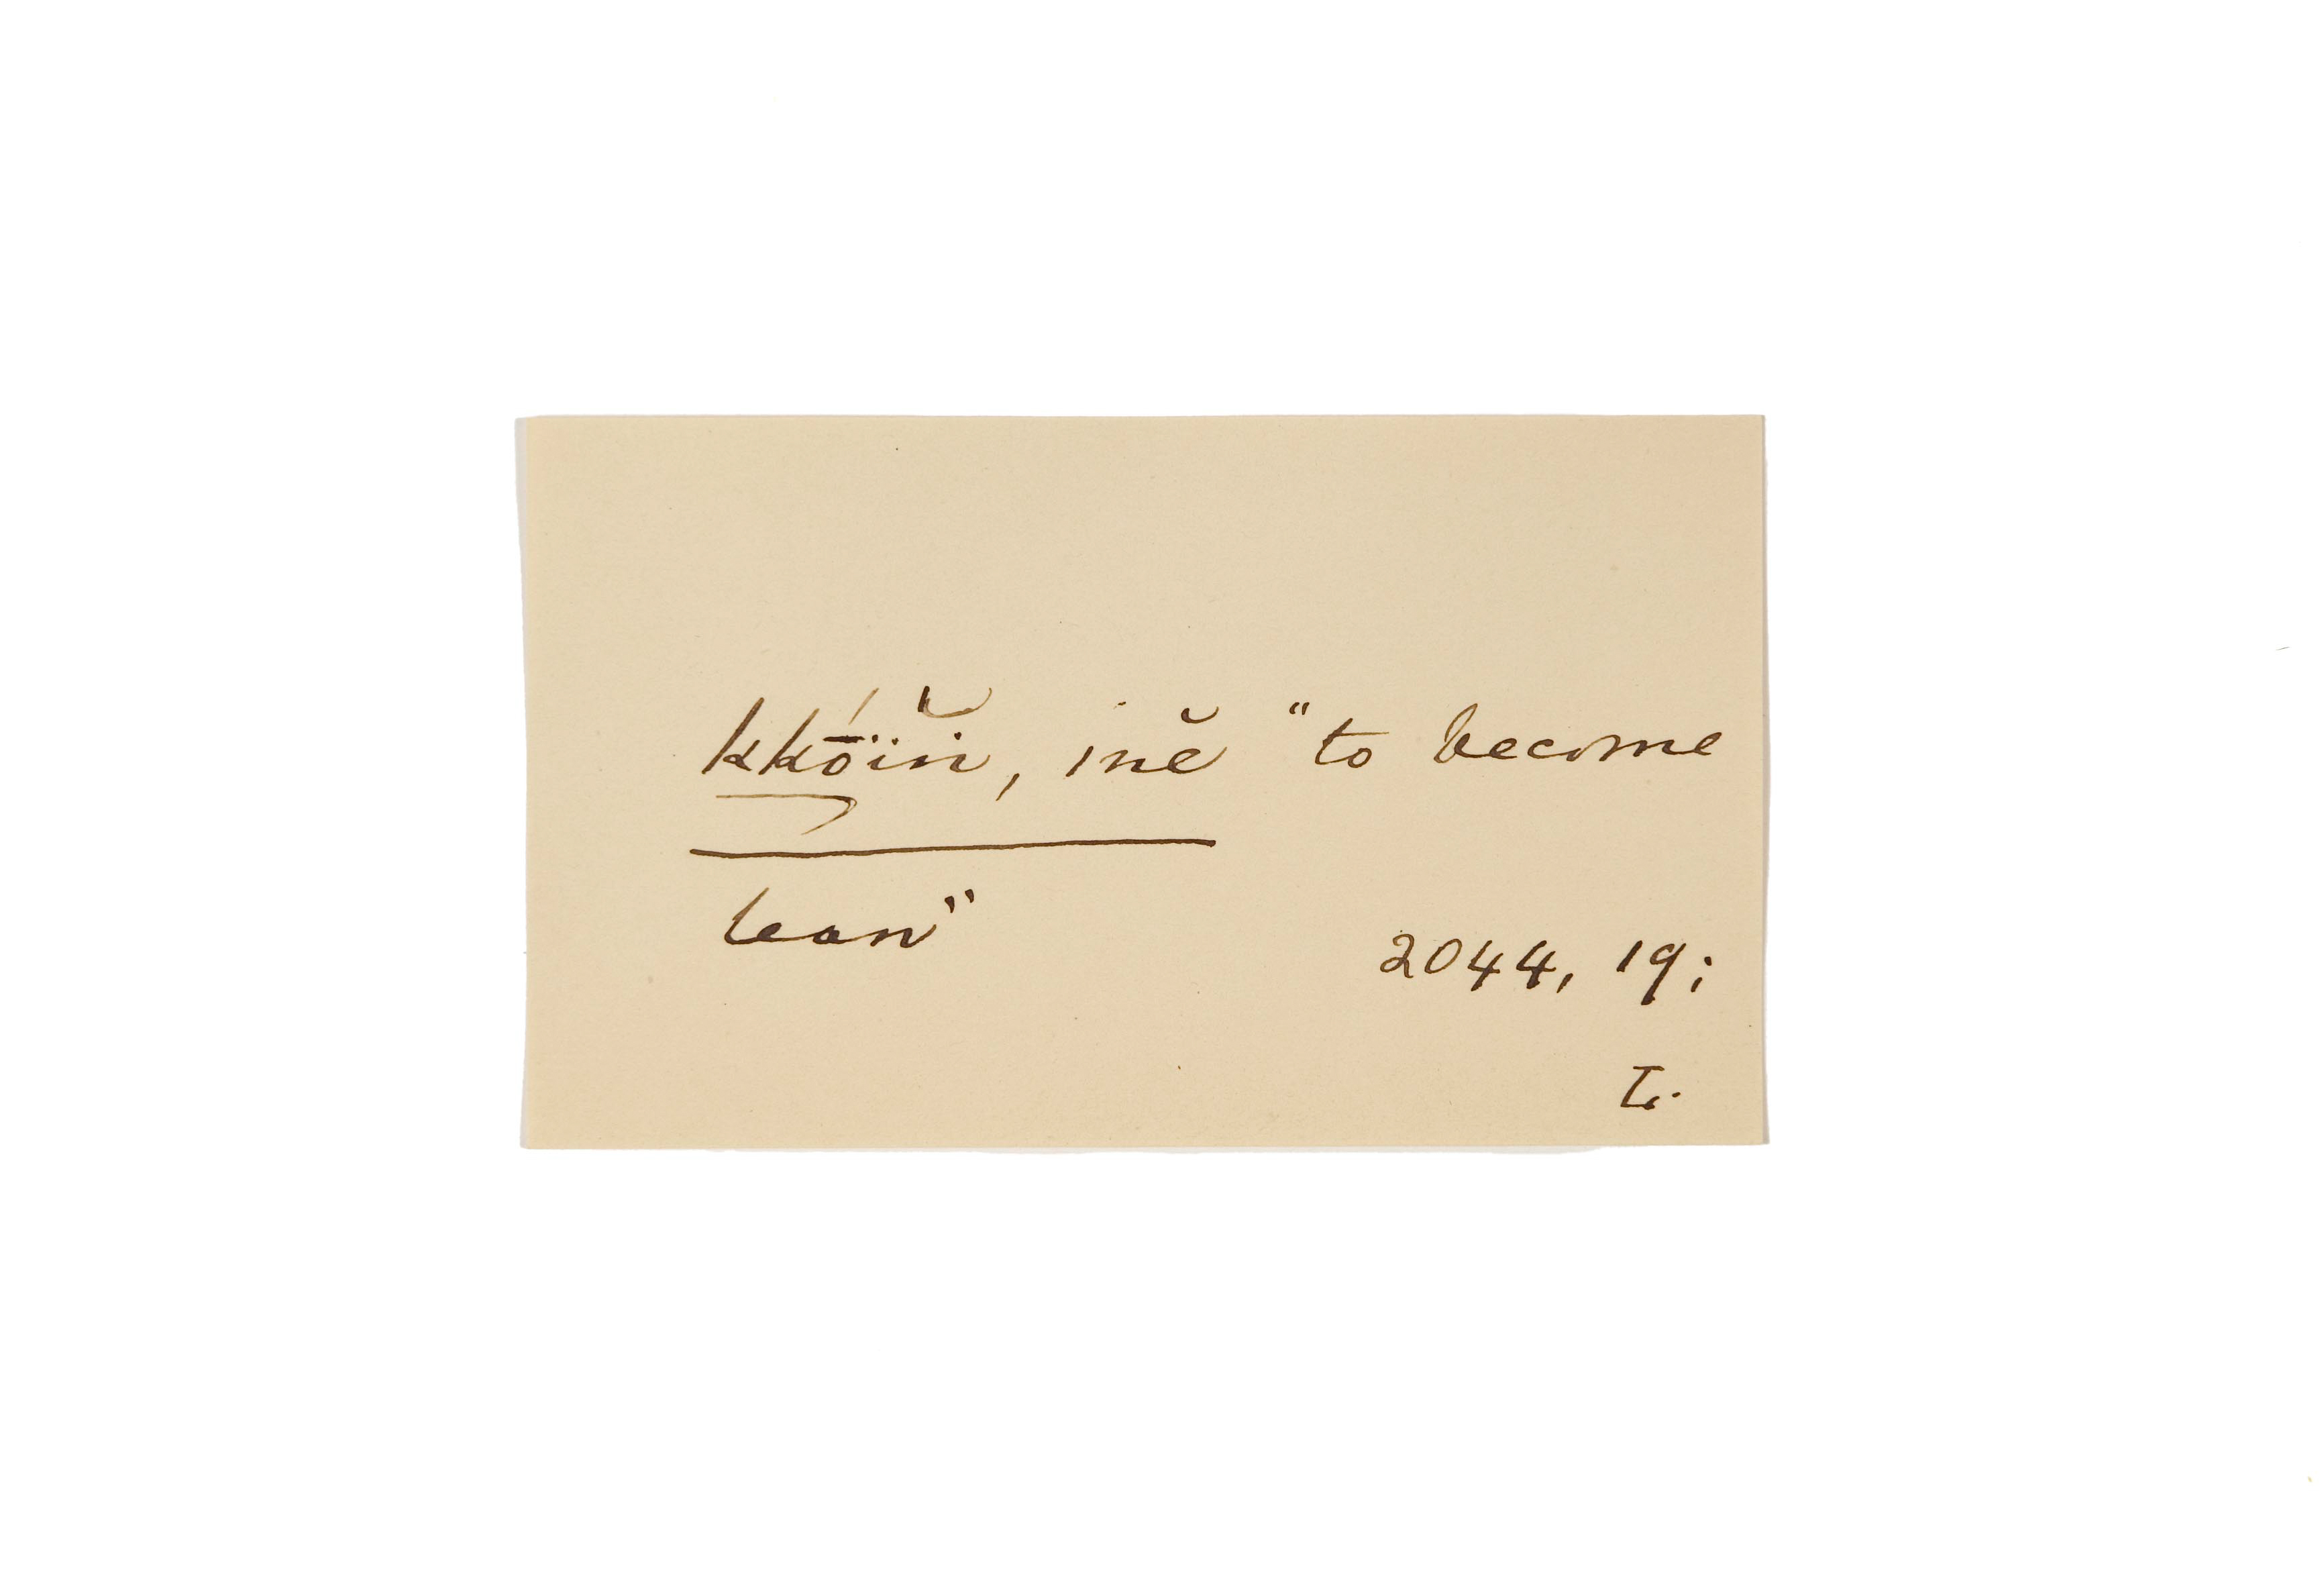 kkṓïn̆, inĕ "to become
lean"
2044, 19;
I.